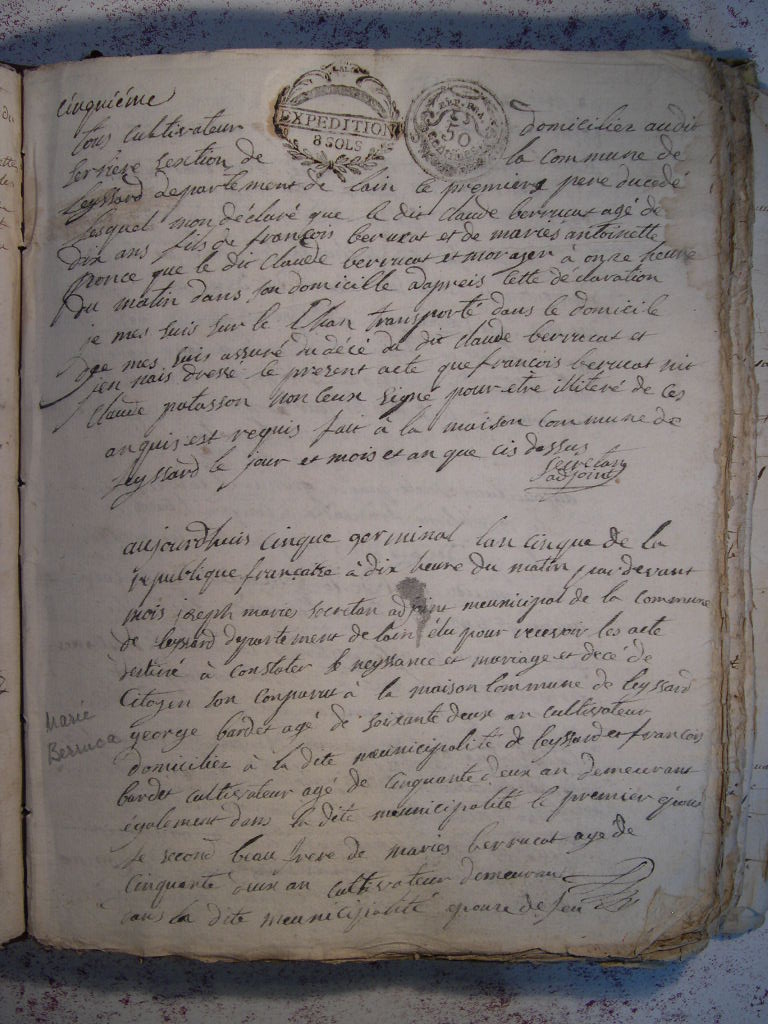 cinquiéme
EXPEDITION
8 SOLS
REP. FRA.
50
tous cultivateur domiciliez audit
serriere section de la commune de
leyssard departement de lain le premier pere du cedé
lesquel mon déclaré que le dit claude berrucat agé de
dix ans fils de françois berucat et de maries antoinette
ronce que le dit Claude berrucat et mor a onze heure
du matin dans son domicille dapreis cette déclaration
je mes suis sur le Chan transporté dans le domicile
je mes suis assuré du décé du dit claude berrucat et
jen nais dressé le present acte que françois berrucat nit
Claude patasson non ceux signé pour etre illiteré de ces
anquis est requis fait à la maison commune de
Leyssard le jour et mois et an que cis dessus
secretan
adjoint
aujourdhuis cinque germinal lan cinque de la
republique française à dix heure du matin par devant
mois joseph maries secretan adjoint meunicipal de la commune
de leyssard departement de lain élu pour recevoir les acte
destiné à constater le neyssance et mariage et decé de
Citoyen son conparut à la maison Commune de Leyssard
george bardet agé de soixante deux an cultivateur
Marie
Berruca
domiciliez à la dite meunicipalité de leyssard et françois
bardet cultivateur agé de cinquante deux an demeurant
également dans la dite meunicipalité le premier
le second beau frere de maries berrucat age de
Cinquante an cultivateur demeurant
dans la dite meunicipalité epouse de feu